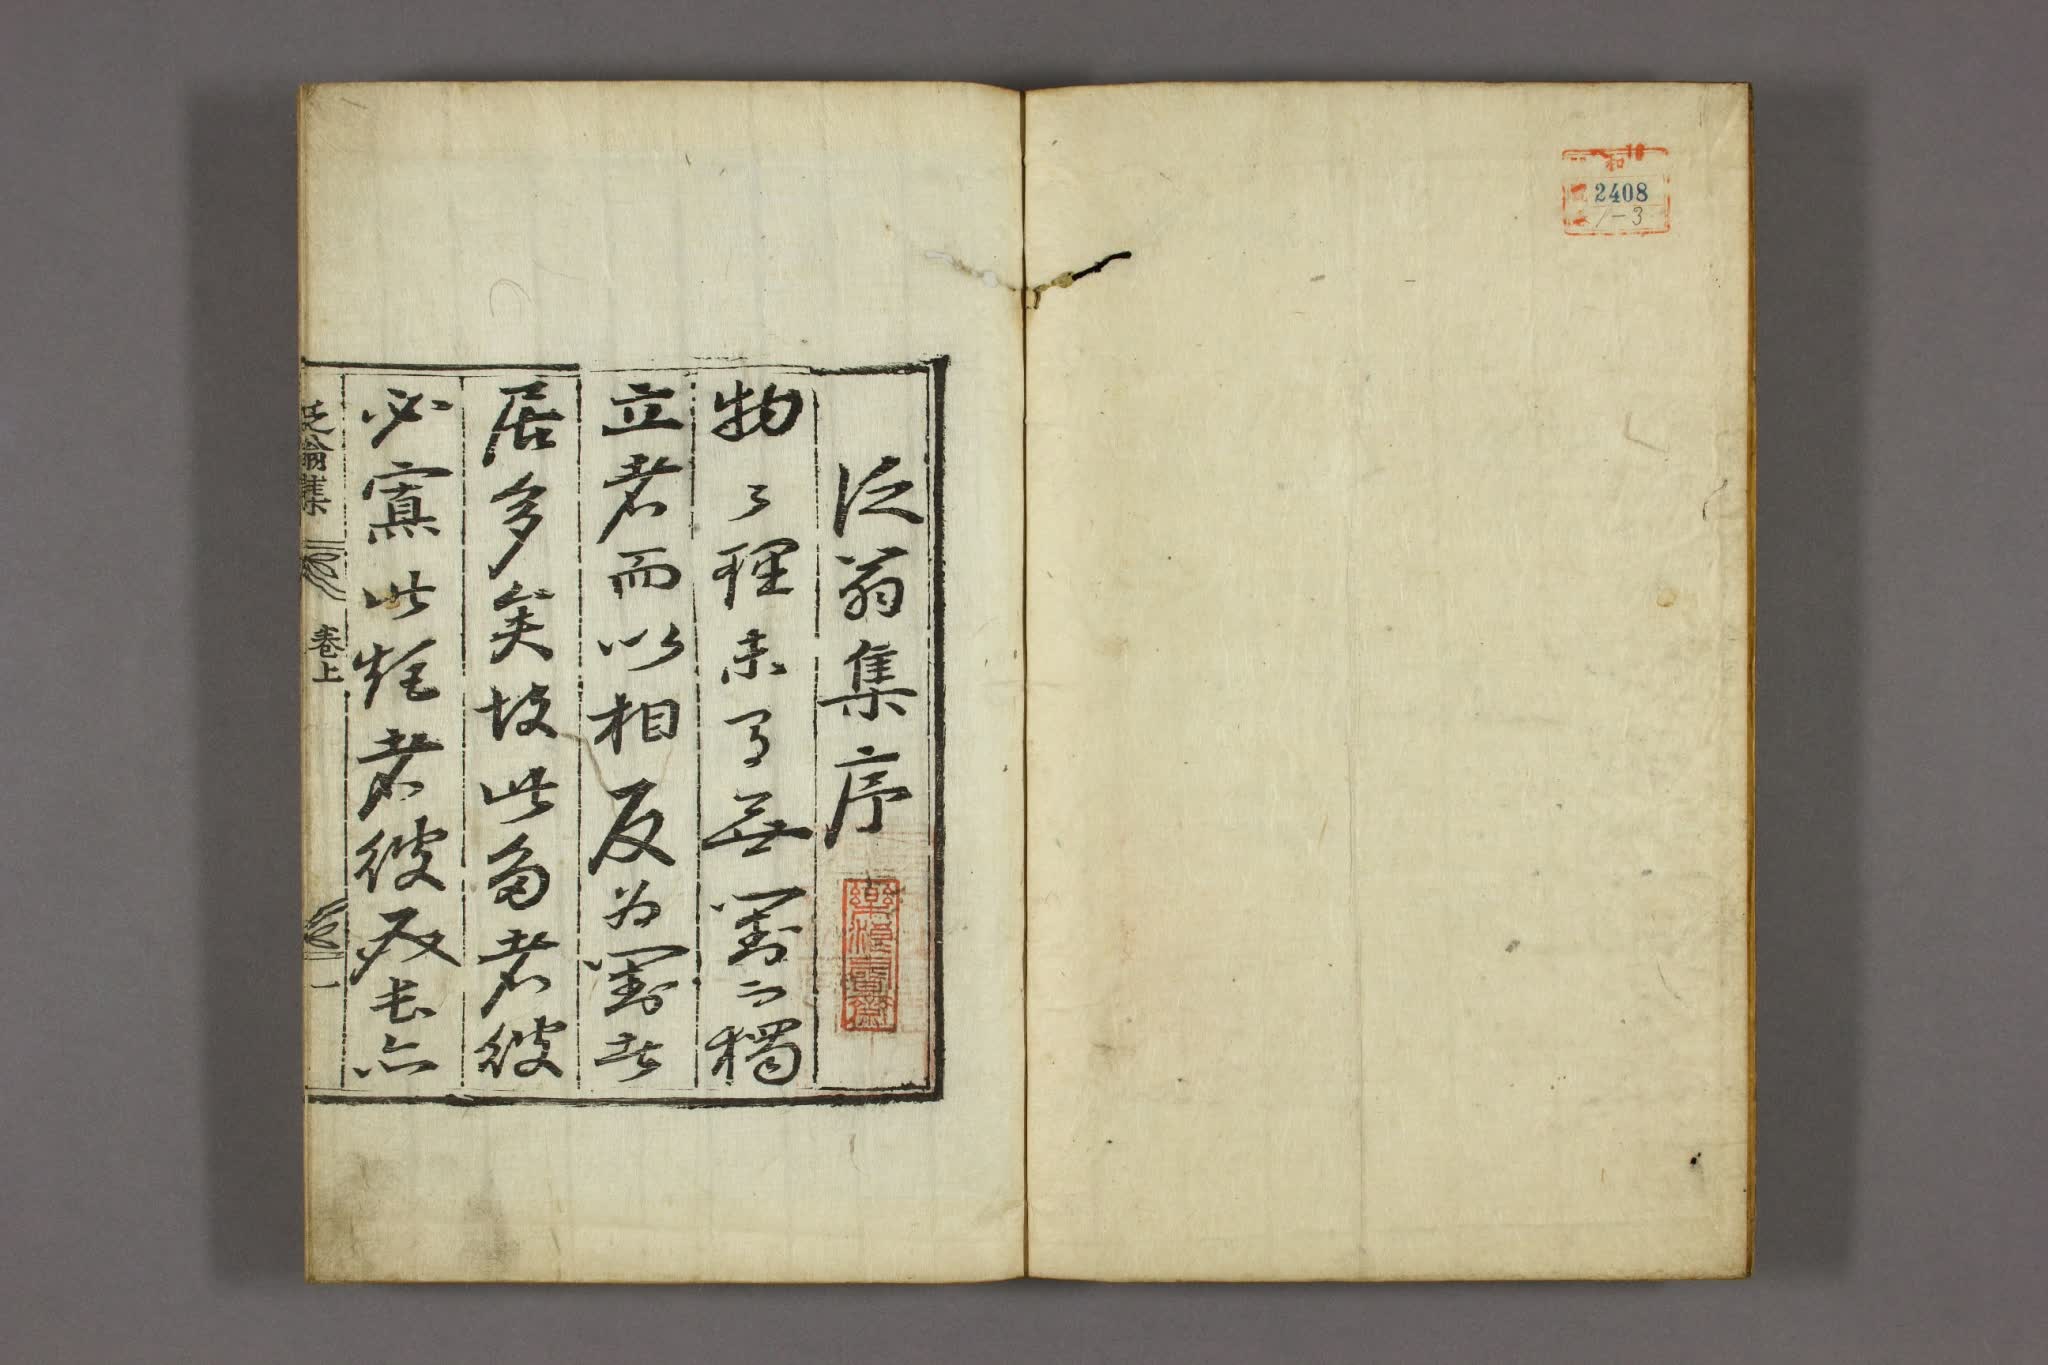 和
2408
1-3
泛翁集序
物之理未有無對而獨
立者而以相反為對者
居多矣故此多者彼
必寡此短者彼取長亦
泛翁集
卷上
一